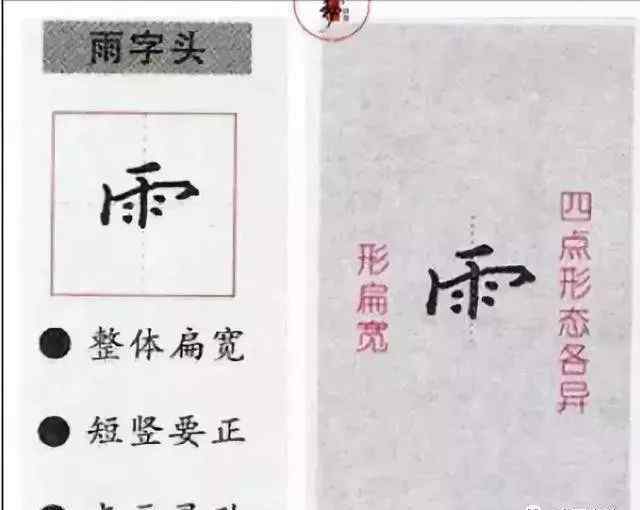 雨字头
⻗
● 整体扁宽
● 短竖要正
形扁宽
⻗
四点形态各异